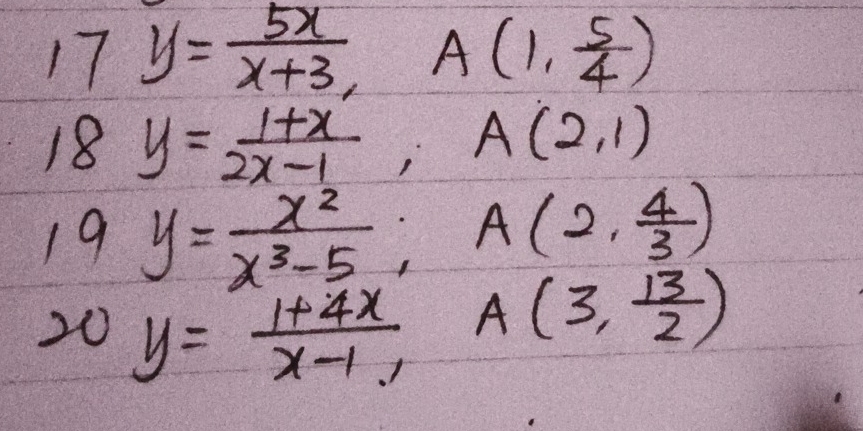 17 y = 5x/(x+3), A(1, 5/4)
18 y = (1+x)/(2x-1) ; A(2,1)
19 y = x²/(x³-5) ; A(2, 4/3)
20 y = (1+4x)/(x-1), A(3, 13/2)